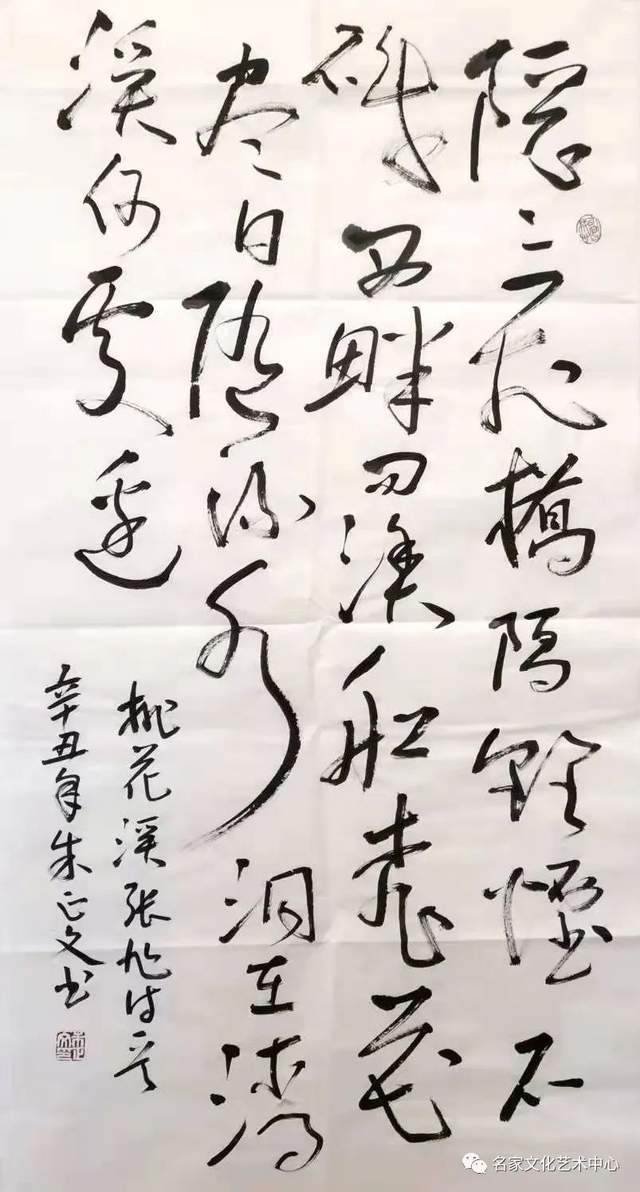 隱〻飛橋隔野煙石
磯西畔问漁船桃花
尽日随流水洞在清
溪何處邊
桃花溪张旭诗一首
辛丑年朱正文书
名家文化艺术中心